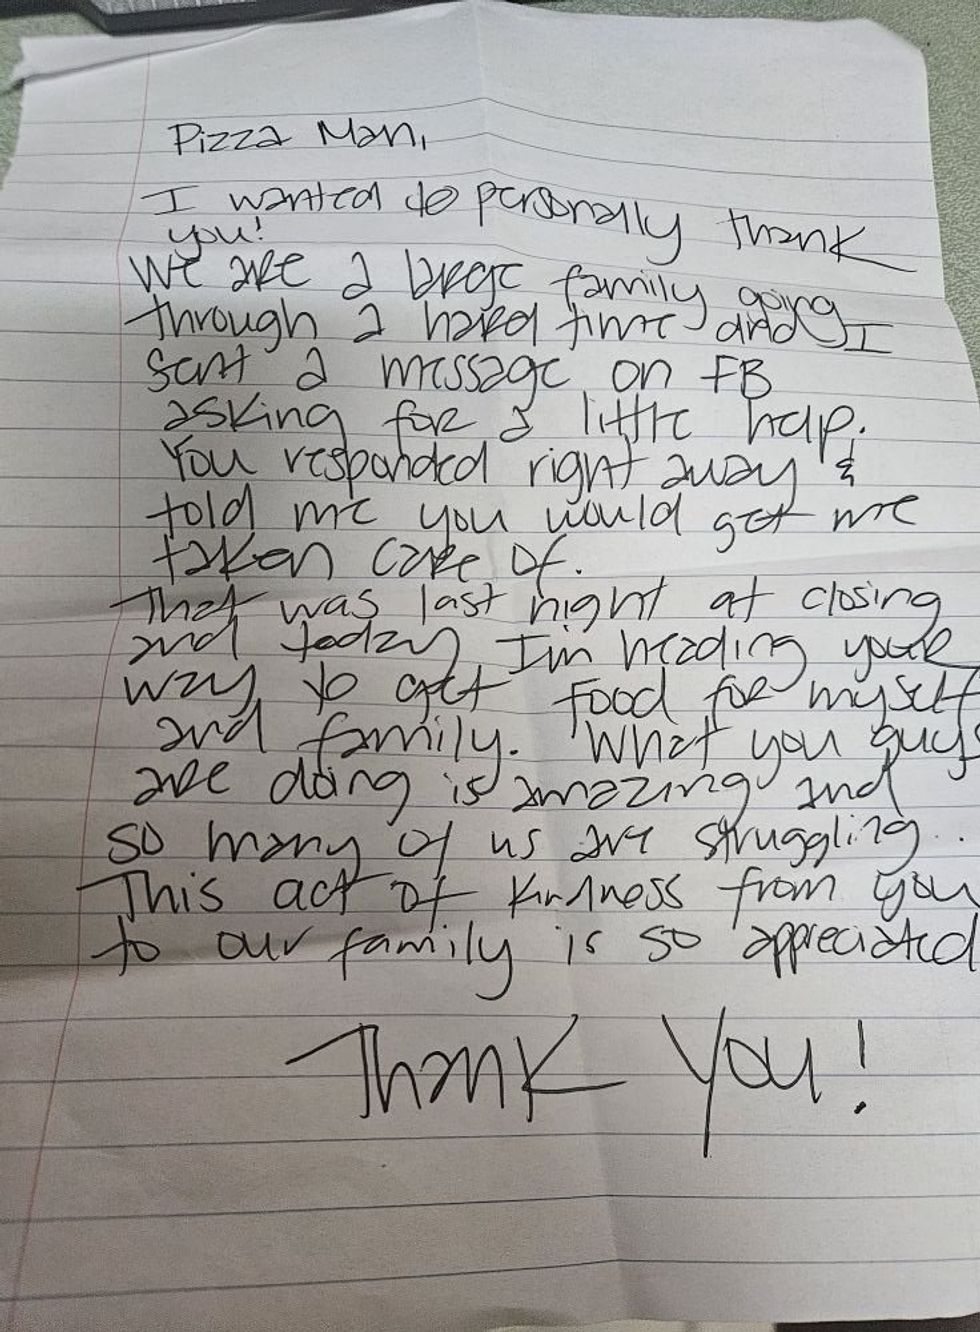 Pizza Man,
I wanted to personally thank
you!
We are a large family going
through a hard time and I
sent a message on FB
asking for a little help.
You responded right away &
told me you would get me
taken care of.
That was last night at closing
and today I'm heading your
way to get food for myself
and family. What you guys
are doing is amazing and
so many of us are struggling..
This act of kindness from you
to our family is so appreciated
Thank You!